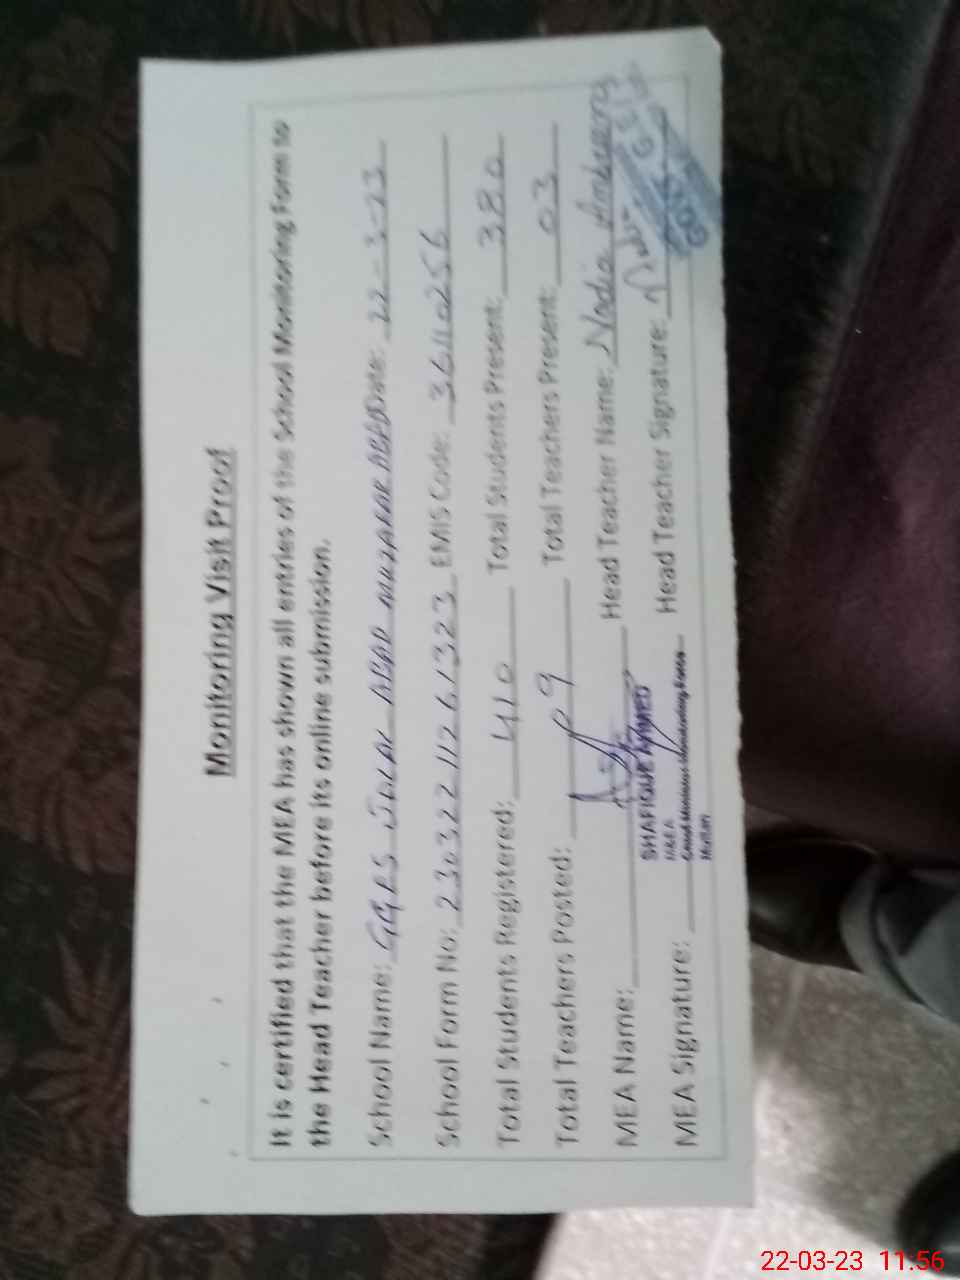 Monitoring Visit Proof
It is certified that the MEA has shown all entries of the School Monitoring Form to
the Head Teacher before its online submission.
School Name: GGES JALAL ABAD MUZAFAR ABAD Date: 22-3-23
School Form No: 230322111261323 EMIS Code: 36110256
Total Students Registered: 410 Total Students Present: 380
Total Teachers Posted: 09 Total Teachers Present: 03
MEA Name: Head Teacher Name: Nadia Ambreen
SHAFIQUE AHMED
MEA
Chief Minister Monitoring Force
Multan
MEA Signature: Head Teacher Signature: Nadia
22-03-23 11:56